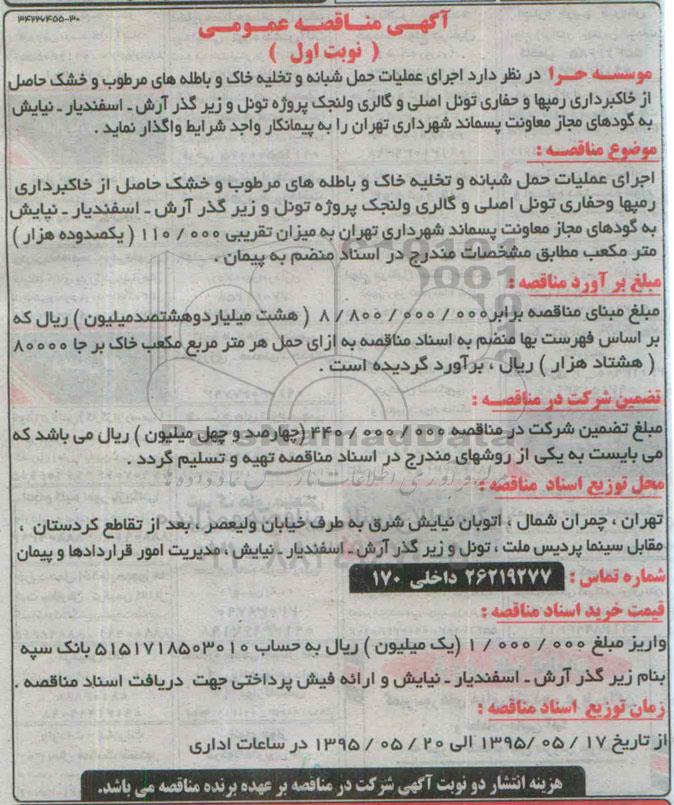 ۳۴۲۲۶۴۵۵-۳۰
آگهی مناقصه عمومی
( نوبت اول )
موسسه حرا در نظر دارد اجرای عملیات حمل شبانه و تخلیه خاک و باطله های مرطوب و خشک حاصل
از خاکبرداری رمپها و حفاری تونل اصلی و گالری ولنجک پروژه تونل و زیر گذر آرش ـ اسفندیار ـ نیایش
به گودهای مجاز معاونت پسماند شهرداری تهران را به پیمانکار واجد شرایط واگذار نماید .
موضوع مناقصه :
اجرای عملیات حمل شبانه و تخلیه خاک و باطله های مرطوب و خشک حاصل از خاکبرداری
رمپها وحفاری تونل اصلی و گالری ولنجک پروژه تونل و زیر گذر آرش ـ اسفندیار ـ نیایش
به گودهای مجاز معاونت پسماند شهرداری تهران به میزان تقریبی ۰۰۰ / ۱۱۰ ( یکصدوده هزار )
متر مکعب مطابق مشخصات مندرج در اسناد منضم به پیمان .
مبلغ بر آورد مناقصه :
مبلغ مبنای مناقصه برابر ۰۰۰ / ۰۰۰ / ۸۰۰ / ۸ ( هشت میلیاردوهشتصدمیلیون ) ریال که
بر اساس فهرست بها منضم به اسناد مناقصه به ازای حمل هر متر مربع مکعب خاک بر جا ۸۰۰۰۰
( هشتاد هزار ) ریال ، برآورد گردیده است .
تضمین شرکت در مناقصه :
مبلغ تضمین شرکت در مناقصه ۰۰۰ / ۰۰۰ / ۴۴۰ (چهارصد و چهل میلیون ) ریال می باشد که
می بایست به یکی از روشهای مندرج در اسناد مناقصه تهیه و تسلیم گردد .
محل توزیع اسناد مناقصه :
تهران ، چمران شمال ، اتوبان نیایش شرق به طرف خیابان ولیعصر ، بعد از تقاطع کردستان ،
مقابل سینما پردیس ملت ، تونل و زیر گذر آرش ـ اسفندیار ـ نیایش ، مدیریت امور قراردادها و پیمان
شماره تماس : ۲۶۲۱۹۲۷۷ داخلی ۱۷۰
قیمت خرید اسناد مناقصه :
واریز مبلغ ۰۰۰ / ۰۰۰ / ۱ (یک میلیون ) ریال به حساب ۵۱۵۱۷۱۸۵۰۳۰۱۰ بانک سپه
بنام زیر گذر آرش ـ اسفندیار ـ نیایش و ارائه فیش پرداختی جهت دریافت اسناد مناقصه .
زمان توزیع اسناد مناقصه :
از تاریخ ۱۷ / ۰۵ / ۱۳۹۵ الی ۲۰ / ۰۵ / ۱۳۹۵ در ساعات اداری
هزینه انتشار دو نوبت آگهی شرکت در مناقصه بر عهده برنده مناقصه می باشد.